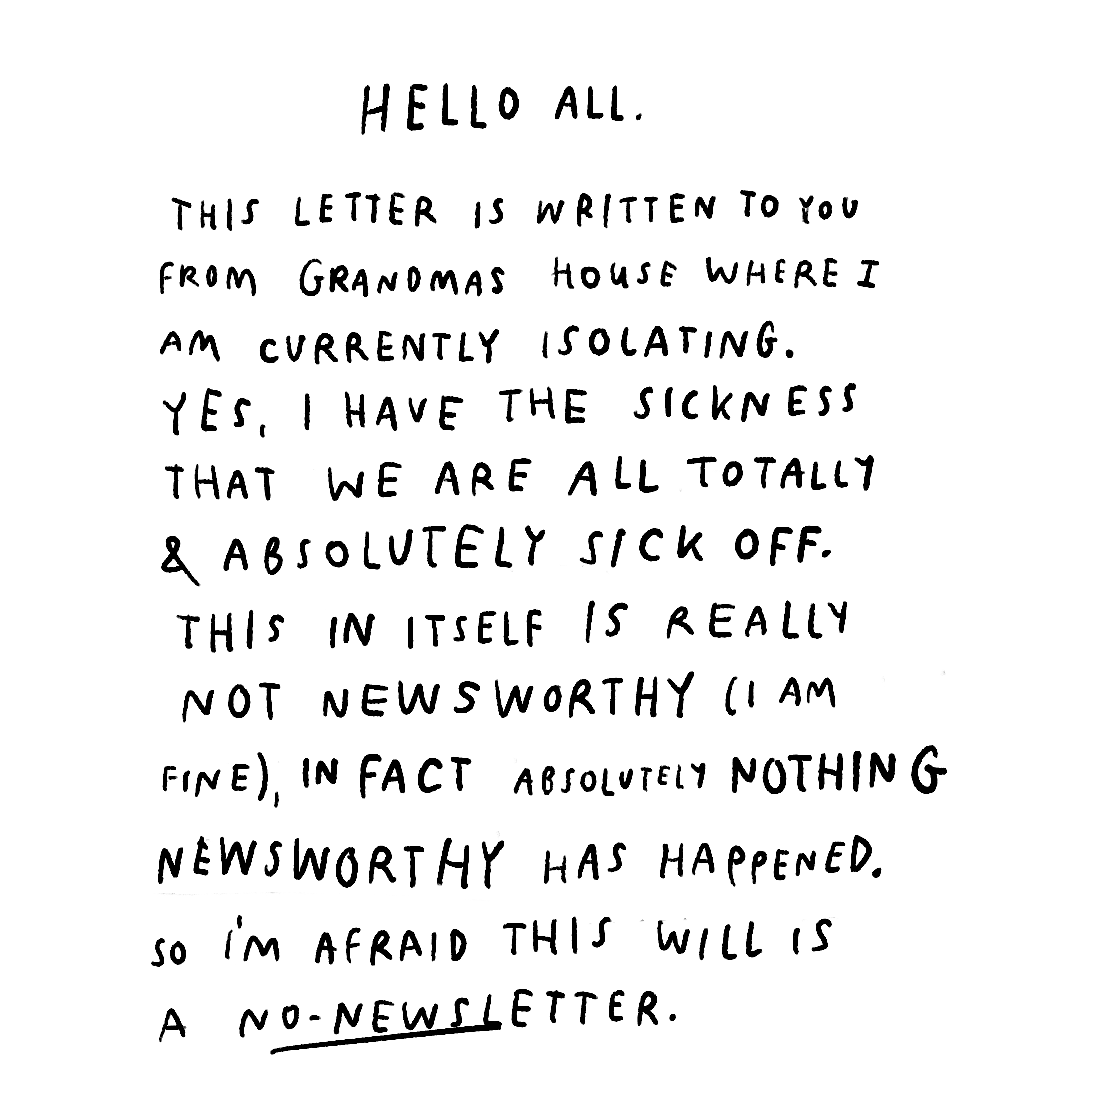 HELLO ALL.
THIS LETTER IS WRITTEN TO YOU
FROM GRANDMAS HOUSE WHERE I
AM CURRENTLY ISOLATING.
YES, I HAVE THE SICKNESS
THAT WE ARE ALL TOTALLY
& ABSOLUTELY SICK OFF.
THIS IN ITSELF IS REALLY
NOT NEWSWORTHY (I AM
FINE), IN FACT ABSOLUTELY NOTHING
NEWSWORTHY HAS HAPPENED.
SO I'M AFRAID THIS WILL IS
A NO-NEWSLETTER.